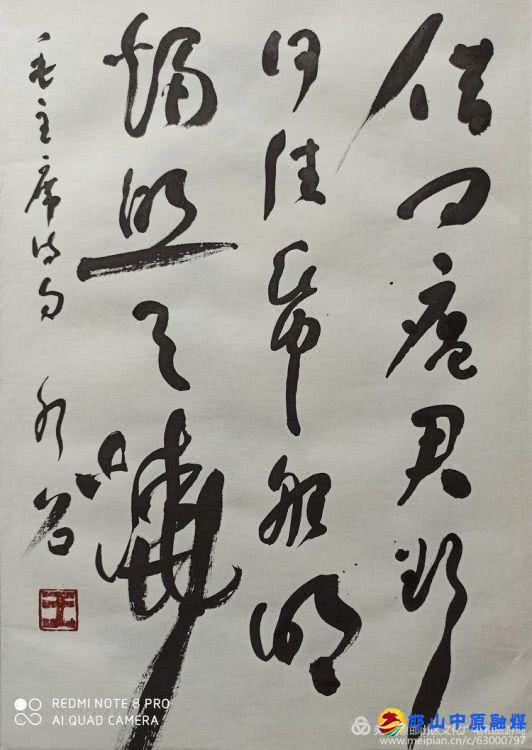 借问瘟君欲
何往帋船明
燭照天燒
毛主席诗句
王
REDMI NOTE 8 PRO
AI QUAD CAMERA
邙山中原融媒
www.meipian.cn/c/63000797